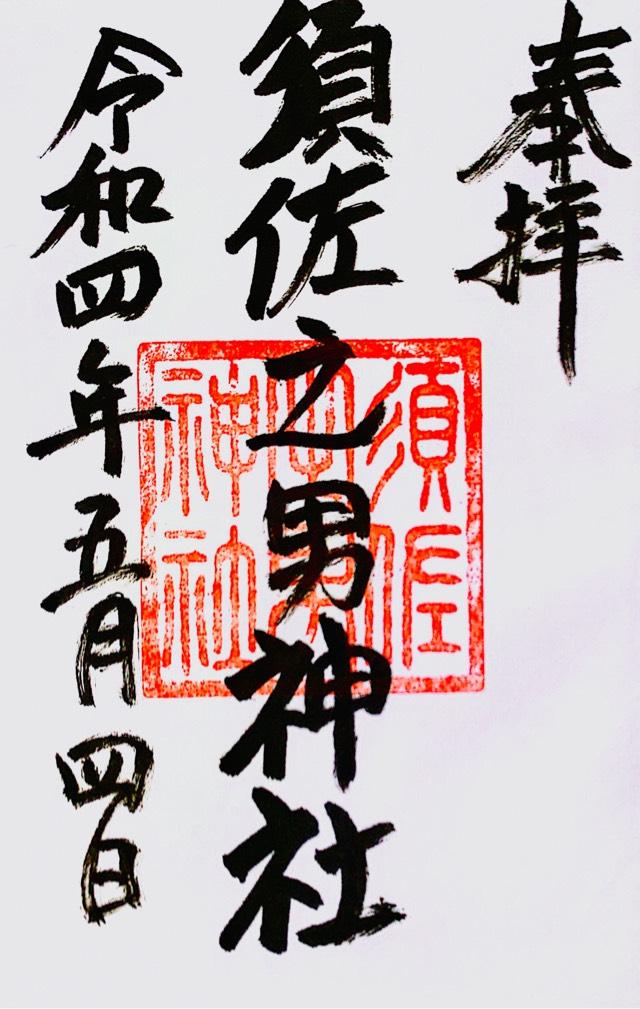 奉拝
須佐之男神社
令和四年五月四日
須佐
之男
神社